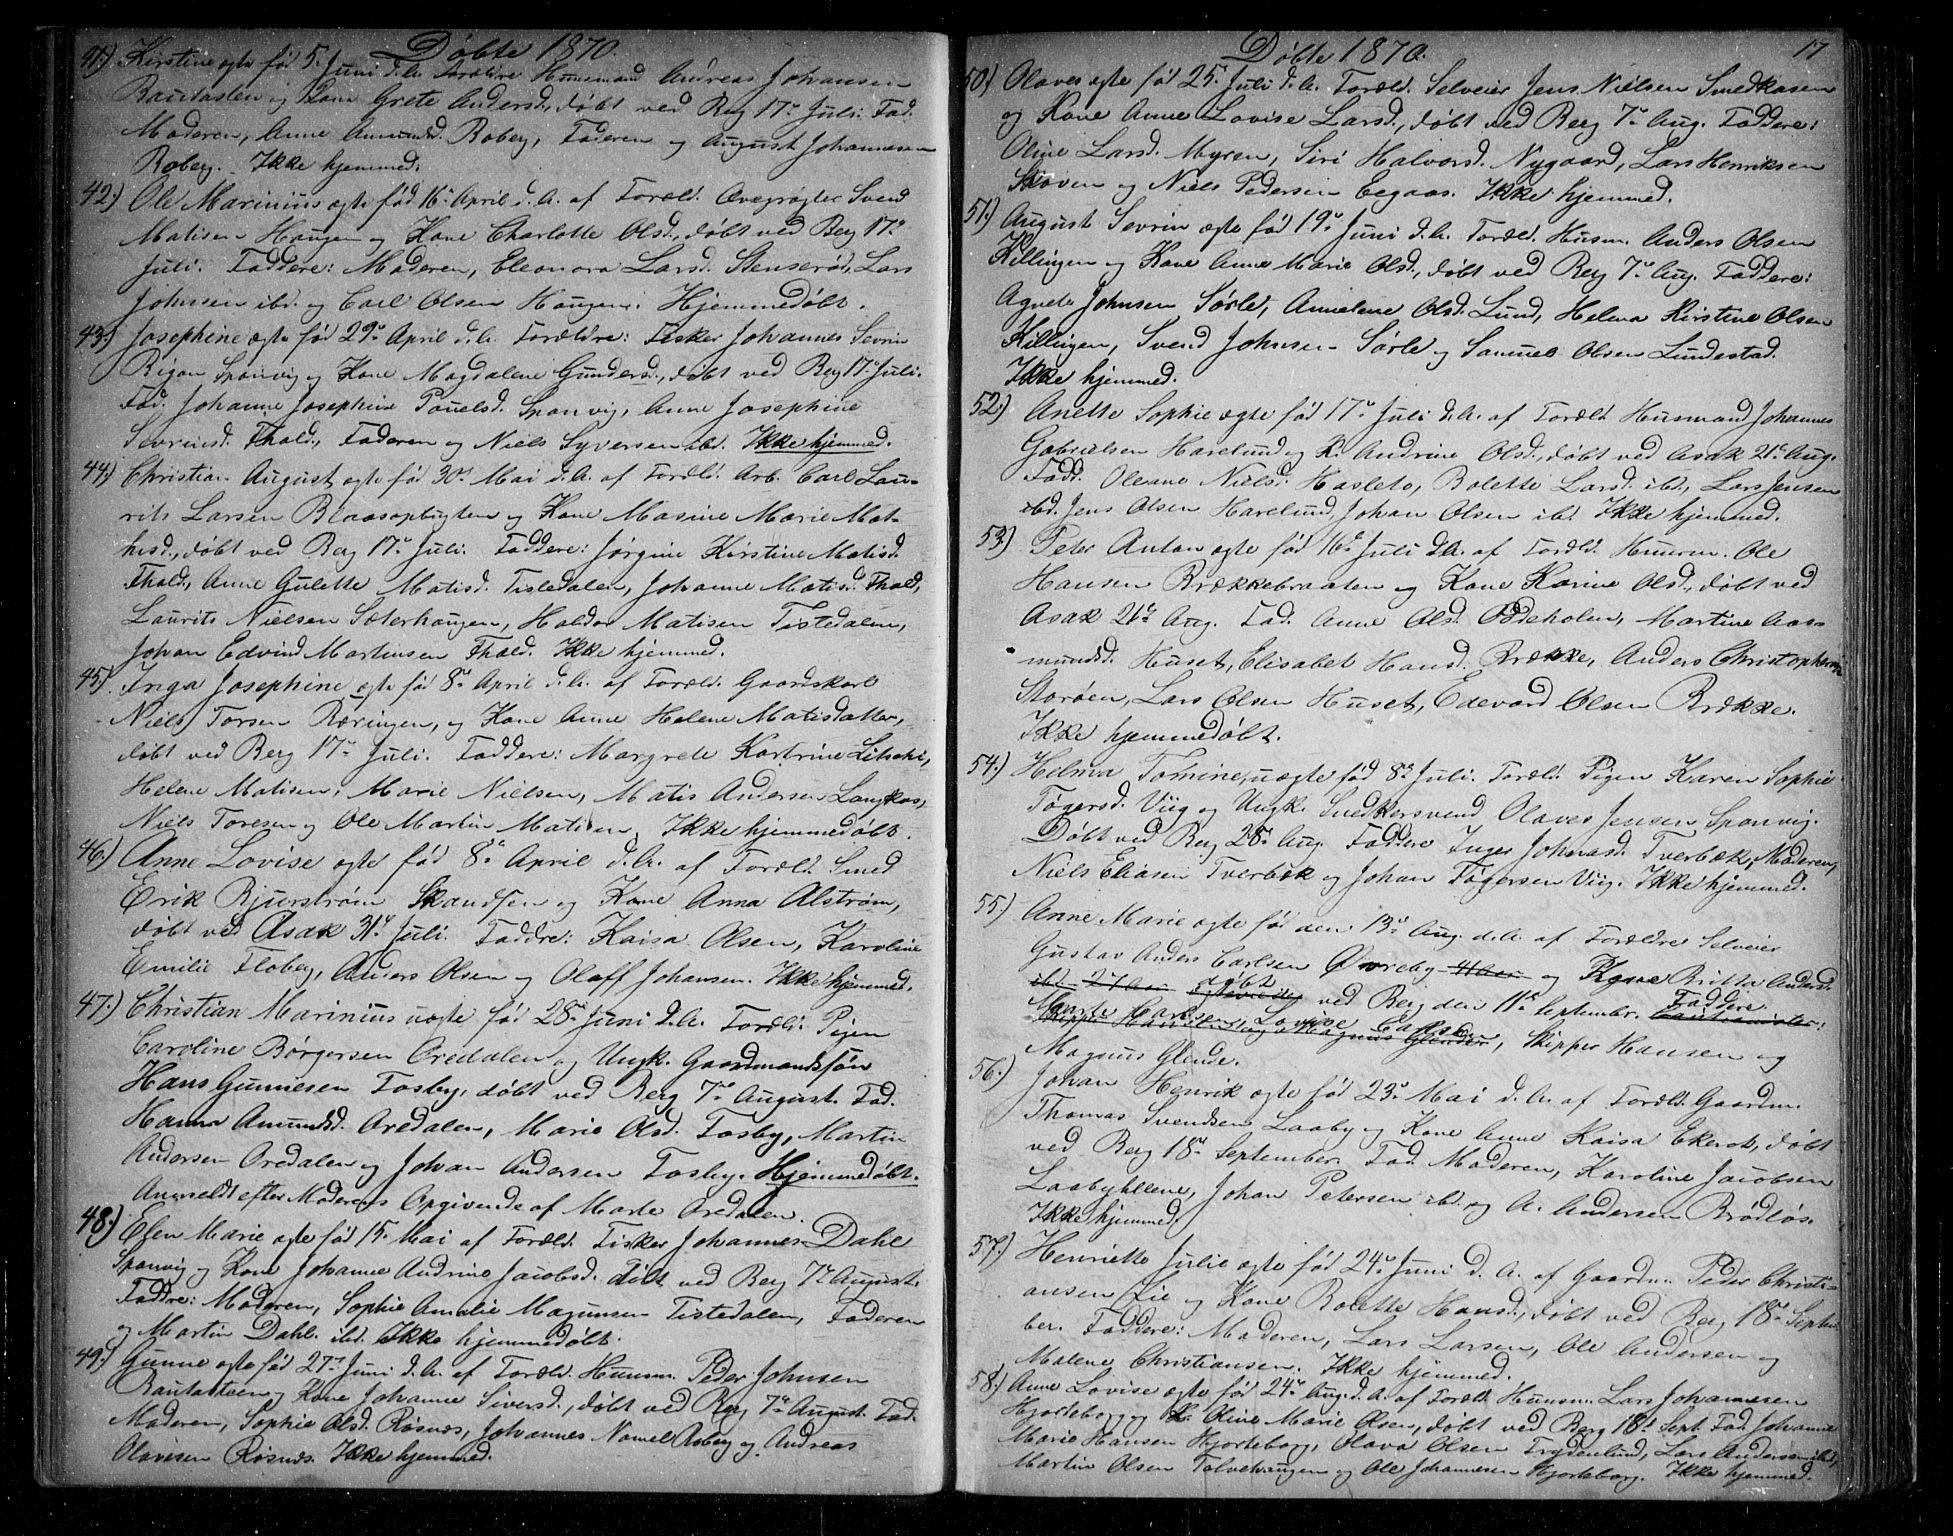 Döbte 1870.
41.) Kirstine ægte fød 5. Juni d.A. Forældre Huusmand Andreas Johansen
Rautasten og Kone Grete Andersd., døbt ved Berg 17de Juli. Fad.
Moderen, Anne Amundsd. Roberg, Faderen og August Johannesen
Roberg. Ikke hjemmed.
42.) Ole Marinius ægte fød 16de April d.A. af Foræld. Qvægrøgter Svend
Matisen Haugen og Kone Charlotte Olsd., døbt ved Berg 17de
Juli. Faddere: Moderen, Eleonora Larsd. Stenserød, Lars
Johnsen ibd. og Carl Olsen Haugen. Hjemmedøbt.
43.) Josephine ægte fød 29de April d.A. Forældre: Fisker Johannes Sevrin
Rigan Sponvig og Kone Magdalene Gundersd., døbt ved Berg 17de Juli.
Fad. Johanne Josephine Pouelsd. Sponvig, Anne Josephine
Sevrinsd. Fhald., Faderen og Niels Syversen ibd. Ikke hjemmed.
44.) Christian August ægte fød 30te Mai d.A. af Foræld. Arb. Carl Lau-
rits Larsen Blaasoptugten og Kone Maxine Marie Mat-
hisd., døbt ved Berg 17de Juli. Faddere: Jørgine Kirstine Matisd.
Fhald, Anne Gulette Matisd. Tistedalen, Johanne Matisd. Fhald,
Laurits Nielsen Sæterhaugen, Haldor Matisen Tistedalen,
Johan Edvind Martinsen Fhald. Ikke hjemmed.
45.) Inga Josephine ægte fød 8de April d.A. af Foræld. Gaardskarl
Niels Torsen Ræringen, og Kone Anne Helene Matisdatter,
døbt ved Berg 17de Juli. Faddere: Margrete Kartrine
Helene Matisen, Marie Nielsen, Matis Andersen Langkas,
Niels Toresen og Ole Martin Matisen. Ikke hjemmedøbt.
46.) Anne Lovise ægte fød 8de April d.A. af Foræld. Smed
Erik Bjurstrøm Skandsen og Kone Anna Alstrøm,
døbt ved Asak 31te Juli. Faddre: Kaisa Olsen, Karoline
Emilie Floberg, Anders Olsen og Oloff Johansen. Ikke hjemmed.
47.) Christian Marinius uægte fød 28de Juni d.A. Foræld. Pigen
Caroline Børgersen Oredalen og Ungk. Gaardmandssøn
Hans Gunnesen Fosby, døbt ved Berg 7de August. Fad.
Hanna Amundsd. Oredalen, Marie Olsd. Fosby, Martin
Andersen Oredalen og Johan Andersen Fosby. Hjemmedøbt.
Anmeldt efter Moderens Opgivende af Marte Oredalen.
48.) Elen Marie ægte fød 15. Mai af Foræld. Fisker Johannes Dahl
Sponvig og Kone Johanne Andrine Jacobsd. døbt ved Berg 7de August.
Faddre: Moderen, Sophie Amalie Magnusen Tistedalen, Faderen
og Martin Dahl. ibd. Ikke hjemmedøbt.
49.) Gunne ægte fød 27de Juni d.A. af Foræld. Huusm. Peder Johnsen
Rautasteen og Kone Johanne Siversd., døbt ved Berg 7de August. Fad.
Moderen, Sophie Olsd. Røsnæs, Johannes Nomel Asberg og Andreas
Olavesen Røsnæs. Ikke hjemmed.
17
Döbte 1870.
50.) Olaves ægte fød 25. Juli d.A. Foræld. Selveier Jens Nielsen Smedkasen
og Kone Anne Lovise Larsd., døbt ved Berg 7de Aug. Faddere:
Oline Larsd. Myren, Siri Halvorsd. Nygaard, Lars Henriksen
Skoven og Niels Pedersen Eegaas. Ikke hjemmed.
51.) August Sevrin ægte fød 19de Juni d.A. Foræld. Husm. Anders Olsen
Killingen og Kone Anne Marie Olsd., døbt ved Berg 7de Aug. Faddere:
Agnete Johnsen Sørle, Annelene Olsd. Lund, Helena Kirstine Olsen
Killingen, Svend Johnsen Sørle og Samuel Olsen Lundestad.
Ikke hjemmed.
52.) Anette Sophie ægte fød 17de Juli d.A. af Foræld. Husmand Johannes
Gabrielsen Harelund og K. Andrine Olsd., døbt ved Asak 21de Aug.
Fadd. Oleane Nielsd. Hasleto, Bolette Larsd. ibd., Lars Jensen
ibd. Jens Olsen Harelund, Johan Olsen ibd. Ikke hjemmed.
53.) Peter Anton ægte fød 16de Juli d.A. af Foræld. Huusm. Ole
Hansen Brækkebraaten og Kone Karine Olsd., døbt ved
Asak 21de Aug. Fad. Anne Olsd. Oddeholen, Martine Aas-
mundsd. Huset, Elisabet Hansd. Brække, Anders Christophersen
Storøen, Lars Olsen Huset, Edevard Olsen Brække.
Ikke hjemmedøbt.
54.) Helma Tomine, uægte fød 8de Juli. Foræld. Pigen Karen Sophie
Tøgersd. Viig og Ungk. Snedkersvend Olaves Jensen Sponvig.
Døbt ved Berg 28de Aug. Faddere Inger Johnasd. Tverbæk, Moderen,
Niels Eliasen Tverbæk og Johan Tøgersen Viig. Ikke hjemmed.
55.) Anne Marie ægte fød den 13de Aug. d.A. af Forældre Selveier
Gustav Anders Carlsen Øvreby og Kone Britta Andersd.
døbt ved Berg den 11te September. Faddere:
Marte Carlsen, Lovise Carlsen, Skipper Hansen og
Magnus Glende.
56.) Johan Henrik ægte fød 23de Mai d.A. af Foræld. Gaardm.
Thomas Svendsen Laaby og Kone Anne Kaisa Ekerot, døbt
ved Berg 18de September. Fad. Moderen, Karoline Jacobsen
Laabyhllene, Johan Petersen ibd. og A. Andersen Brødløs.
Ikke hjemmed.
57.) Henriette Julie ægte fød 24de Juni d.A. af Gaardm. Peder Christi-
ansen Lie og Kone Bolette Hansd., døbt ved Berg 18de Septem-
ber. Faddere: Moderen, Lars Larsen, Ole Andersen og
Malene Christiansen. Ikke hjemmed.
58.) Anne Lovise ægte fød 24de Aug. d.A. af Foræld. Huusm. Lars Johannesen
Hjorteborg og K. Oline Marie Olsen, døbt ved Berg 18d. Sept. Fad. Johanne
Marie Hansen Hjorteborg, Olava Olsen Frydenlund, Lars Andersen ibd.,
Martin Olsen Tolvehaugen og Ole Johannesen Hjorteborg. Ikke hjemmed.